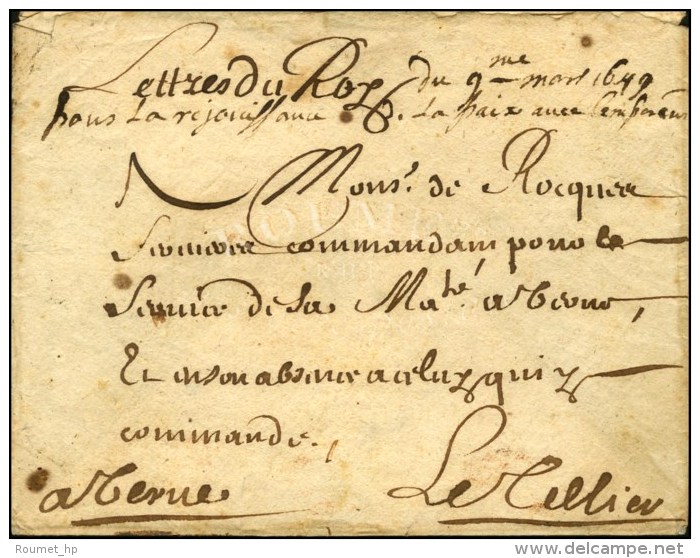 Lettres du Roy du 9me mars 1649
pour La rejouissance de La paix avec l'empereur
Mons.r de Rocquere
commandant pour le
Service de sa Ma.té a Verue,
Et en son absence a celuy qui y
commande.
a Verue Le Tellier
Roumet_hp
©delcampe.net